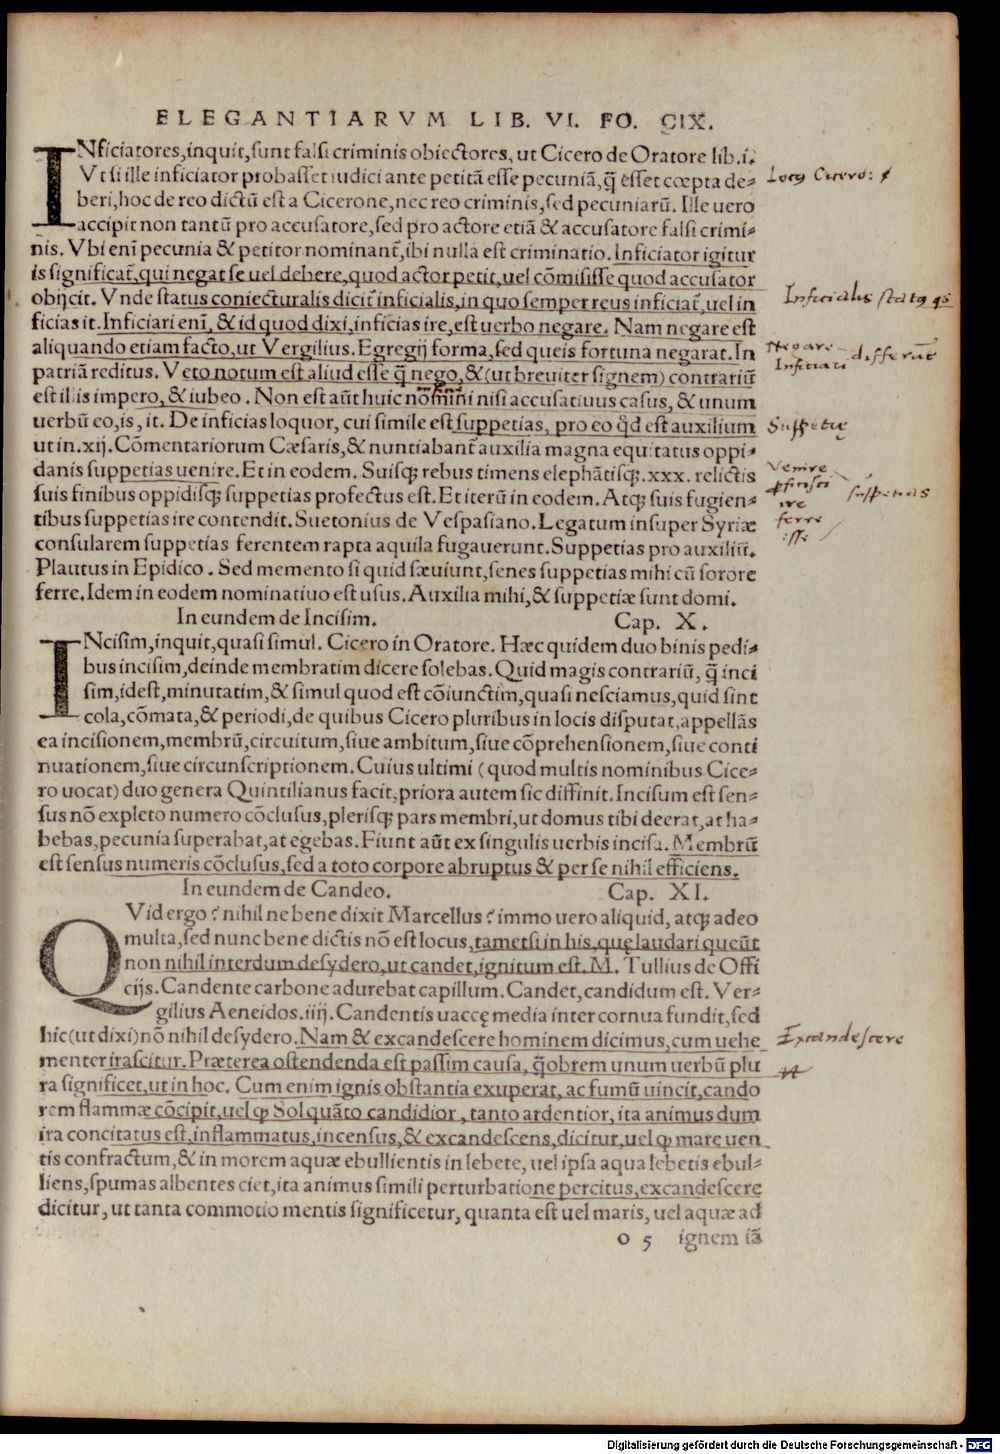 ELEGANTIARVM LIB. VI. FO. CIX.
INficiatores, inquit, sunt falsi criminis obiectores, ut Cicero de Oratore lib. i.
Vt si ille inficiator probasset iudici ante petitā esse pecuniā, q̃ esset cœpta de-
beri, hoc de reo dictū est a Cicerone, nec reo criminis, sed pecuniarū. Ille uero
accipit non tantū pro accusatore, sed pro actore etiā & accusatore falsi crimi-
nis. Vbi eni pecunia & petitor nominant̃, ibi nulla est criminatio. Inficiator igitur
is significat̃, qui negat se uel debere, quod actor petit, uel cōmisisse quod accusator
obijcit. Vnde status coniecturalis dicit̃ inficialis, in quo semper reus inficiat̃, uel in
ficias it. Inficiari eni, & id quod dixi, inficias ire, est uerbo negare. Nam negare est
aliquando etiam facto, ut Vergilius. Egregij forma, sed queis fortuna negarat. In
patriā reditus. Veto notum est aliud esse q̃ nego, & (ut breuiter signem) contrariū
est illis impero, & iubeo. Non est aūt huic nomini nisi accusatiuus casus, & unum
uerbū eo, is, it. De inficias loquor, cui simile est suppetias, pro eo qđ est auxilium
ut in .xij. Cōmentariorum Cæsaris, & nuntiabant̃ auxilia magna equitatus oppi-
danis suppetias uenire. Et in eodem. Suisq; rebus timens elephātisq; .xxx. relictis
suis finibus oppidisq; suppetias profectus est. Et iterū in eodem. Atq; suis fugien-
tibus suppetias ire contendit. Suetonius de Vespasiano. Legatum insuper Syriæ
consularem suppetias ferentem rapta aquila fugauerunt. Suppetias pro auxiliū.
Plautus in Epidico. Sed memento si quid sæuiunt, senes suppetias mihi cū sorore
ferre. Idem in eodem nominatiuo est usus. Auxilia mihi, & suppetiæ sunt domi.
In eundem de Incisim. Cap. X.
INcisim, inquit, quasi simul. Cicero in Oratore. Hæc quidem duo binis pedi-
bus incisim, deinde membratim dicere solebas. Quid magis contrariū, q̃ inci
sim, idest, minutatim, & simul quod est cōiunctim, quasi nesciamus, quid sint
cola, cōmata, & periodi, de quibus Cicero pluribus in locis disputat, appellās
ea incisionem, membrū, circuitum, siue ambitum, siue cōprehensionem, siue conti
nuationem, siue circunscriptionem. Cuius ultimi (quod multis nominibus Cice-
ro uocat) duo genera Quintilianus facit, priora autem sic diffinit. Incisum est sen-
sus nō expleto numero cōclusus, plerisq; pars membri, ut domus tibi deerat, at ha-
bebas, pecunia superabat, at egebas. Fiunt aūt ex singulis uerbis incisa. Membrū
est sensus numeris cōclusus, sed a toto corpore abruptus & per se nihil efficiens.
In eundem de Candeo. Cap. XI.
QVid ergo? nihil ne bene dixit Marcellus? immo uero aliquid, atq; adeo
multa, sed nunc bene dictis nō est locus, tametsi in his, quę laudari queūt
non nihil interdum desydero, ut candet, ignitum est. M. Tullius de Offi
cijs. Candente carbone adurebat capillum. Candet, candidum est. Ver-
gilius Aeneidos. iiij. Candentis uaccę media inter cornua fundit, sed
hic (ut dixi) nō nihil desydero. Nam & excandescere hominem dicimus, cum uehe
menter irascitur. Præterea ostendenda est passim causa, q̃obrem unum uerbū plu
ra significet, ut in hoc. Cum enim ignis obstantia exuperat, ac fumū uincit, cando
rem flammæ cōcipit, uel q; Sol quāto candidior, tanto ardentior, ita animus dum
ira concitatus est, inflammatus, incensus, & excandescens, dicitur, uel q; mare uen
tis confractum, & in morem aquæ ebullientis in lebete, uel ipsa aqua lebetis ebul-
liens, spumas albentes ciet, ita animus simili perturbatione percitus, excandescere
dicitur, ut tanta commotio mentis significetur, quanta est uel maris, uel aquæ ad
o 5 ignem iā
Locus Cicero:
Inficialis status qs
Negare
Inficiari differūt
Suppetię
Venire
proficisci
ire
ferre
esse
suppetias
Excandescere
Digitalisierung gefördert durch die Deutsche Forschungsgemeinschaft - DFG